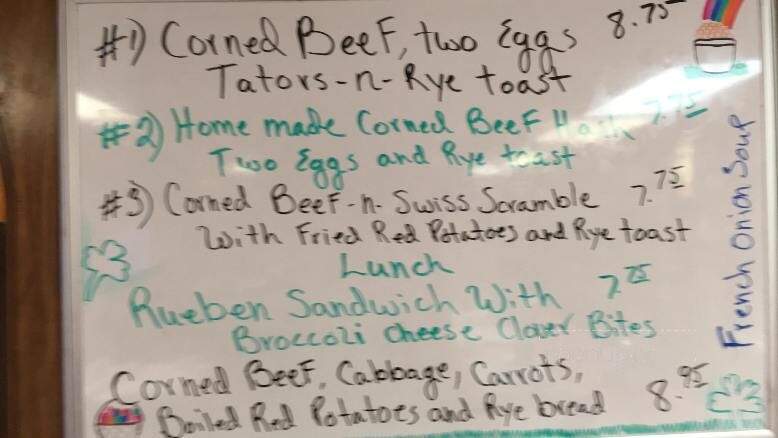 #1) Corned Beef, two Eggs 8.75
Tators-n-Rye toast
#2) Home made Corned Beef Hash 7.75
Two Eggs and Rye toast
#3) Corned Beef-n-Swiss Scramble 7.75
With Fried Red Potatoes and Rye toast
Lunch
Rueben Sandwich With 7.25
Broccoli Cheese Clover Bites
Corned Beef, Cabbage, Carrots,
Boiled Red Potatoes and Rye bread 8.95
French Onion Soup